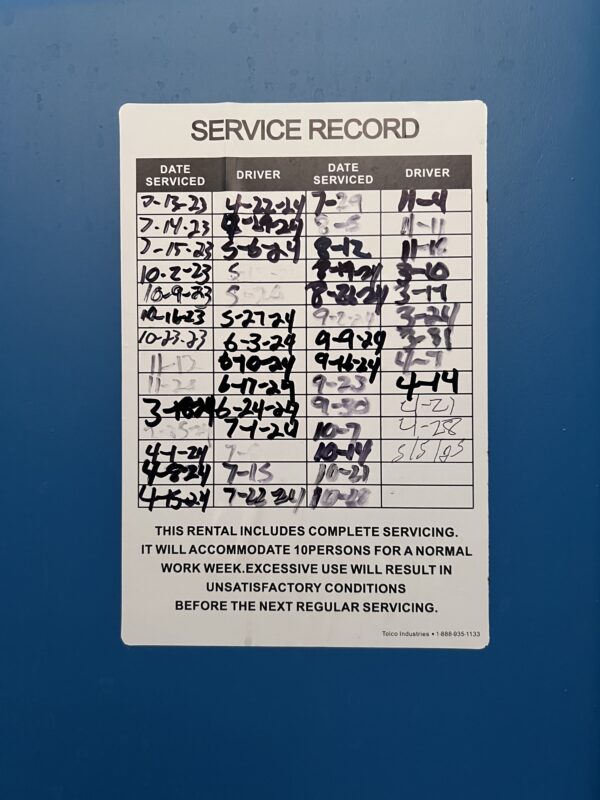 SERVICE RECORD
DATE SERVICED DRIVER DATE SERVICED DRIVER
7-13-23 4-22-24 7-29 11-4
7-14-23 4-29-24 8-5 11-11
7-15-23 5-6-24 8-12 11-18
10-2-23 8-19-24 3-10
10-9-23 5-20 3-17
10-16-23 5-27-24 9-2-24 3-24
10-23-23 6-3-24 9-9-24 3-31
6-10-24 9-16-24 4-7
6-17-24 9-23 4-14
3-18-24 6-24-24 9-30 4-21
7-1-24 10-7 4-28
4-1-24 10-14 5/5/25
4-8-24 7-15 10-21
4-15-24 7-22-24 10-28
THIS RENTAL INCLUDES COMPLETE SERVICING.
IT WILL ACCOMMODATE 10PERSONS FOR A NORMAL
WORK WEEK.EXCESSIVE USE WILL RESULT IN
UNSATISFACTORY CONDITIONS
BEFORE THE NEXT REGULAR SERVICING.
Tolco Industries • 1-888-935-1133